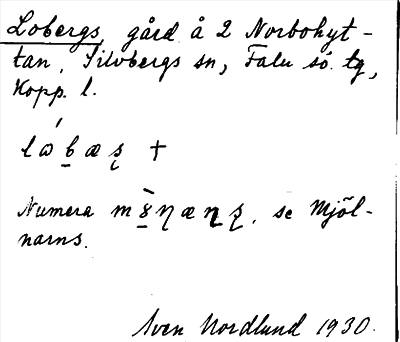 Lobergs, gård å 2 Norbohyt-
tan, Silvbergs sn, Falu sö. tg,
Kopp. l.
Numera se Mjöl-
narns.
Sven Nordlund 1930.